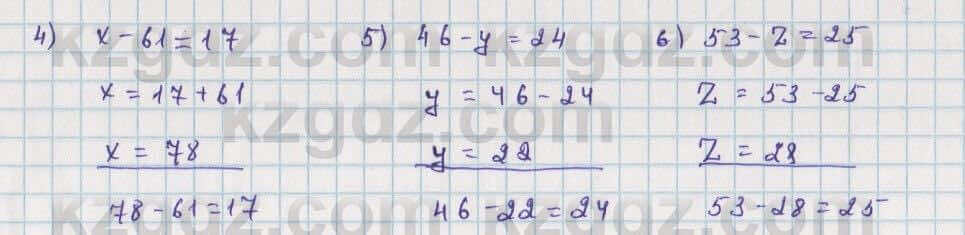 4) x - 61 = 17
x = 17 + 61
x = 78
78 - 61 = 17
5) 46 - y = 24
y = 46 - 24
y = 22
46 - 22 = 24
6) 53 - z = 25
z = 53 - 25
z = 28
53 - 28 = 25
kzgdz.com
kzgdz.com
kzgdz.com